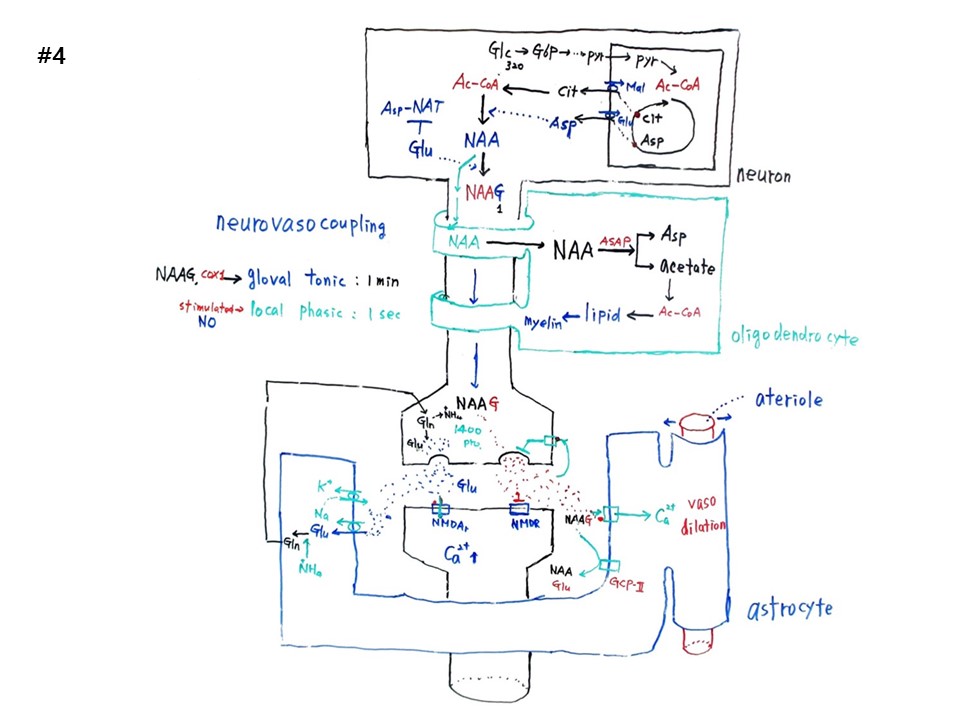 #4
Glc → G6P → ··· pyr → pyr
320
Ac-CoA ← cit ← Mal Ac-CoA
Asp-NAT Asp ← Glu cit
Asp
Glu NAA
NAAG
1
neuron
neurovaso coupling
NAA → NAA ASAP → Asp
acetate
NAAG, cox1 → gloval tonic : 1 min
stimulated → local phasic : 1 sec
NO
Myelin ← lipid ← Ac-CoA
oligodendrocyte
NAAG
Gln → NH4
Glu
1400
ateriole
Glu
K+
Na
Glu
Gln
NH4
NMDAr
NMDR
Ca2+ ↑
NAAG
Ca2+
vaso
dilation
NAA
Glu
GCP-II
astrocyte